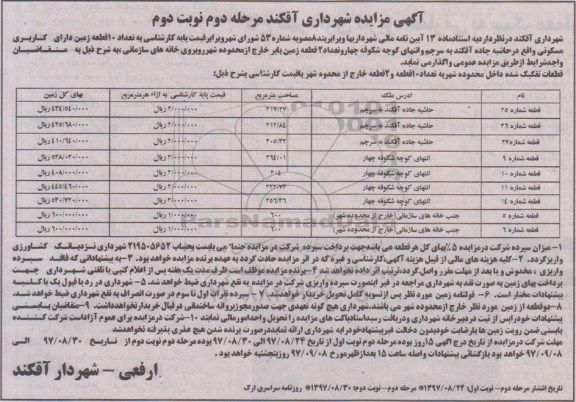 آگهی مزایده شهرداری آقکند مرحله دوم نوبت دوم
شهرداری آقکند درنظر دارد به استناد ماده ۱۳ آیین نامه مالی شهرداریها وبرابر بند ۸ مصوبه شماره ۵۳ شورای شهر وبرابر قیمت پایه کارشناسی به تعداد ۱۰ قطعه زمین دارای کاربری
مسکونی واقع درحاشیه جاده آقکند به سرچم وانتهای کوچه شکوفه چهار و تعداد ۲ قطعه زمین بایر خارج از محدوده شهر روبروی خانه های سازمانی ،به شرح ذیل به متقاضیان
واجد شرایط از طریق مزایده عمومی واگذار می نماید.
قطعات تفکیک شده داخل محدوده شهر به تعداد ۱۰ قطعه و ۲ قطعه خارج از محدوه شهر باقیمت کارشناسی بشرح ذیل:
نام آدرس ملک مساحت مترمربع قیمت پایه کارشناسی به ازاء هر مترمربع بهای کل زمین
قطعه شماره ۲۵ حاشیه جاده آقکند به سرچم ۲۱۷/۲۷ ۲/۰۰۰/۰۰۰ ریال ۴۳۴/۵۴۰/۰۰۰ ریال
قطعه شماره ۲۶ حاشیه جاده آقکند به سرچم ۲۱۲/۸۴ ۲/۰۰۰/۰۰۰ ریال ۴۲۵/۶۸۰/۰۰۰ ریال
قطعه شماره ۲۷ حاشیه جاده آقکند به سرچم ۲۰۵/۳۲ ۲/۰۰۰/۰۰۰ ریال ۴۱۰/۶۴۰/۰۰۰ ریال
قطعه شماره ۹ انتهای کوچه شکوفه چهار ۲۶۴/۰۱ ۲/۰۰۰/۰۰۰ ریال ۵۲۸/۰۲۰/۰۰۰ ریال
قطعه شماره ۱۰ انتهای کوچه شکوفه چهار ۲۰۴ ۲/۰۰۰/۰۰۰ ریال ۴۰۸/۰۰۰/۰۰۰ ریال
قطعه شماره ۱۱ انتهای کوچه شکوفه چهار ۲۲۲/۷۳ ۲/۰۰۰/۰۰۰ ریال ۴۴۵/۴۶۰/۰۰۰ ریال
قطعه شماره ۱۴ انتهای کوچه شکوفه چهار ۲۶۵/۳۶ ۲/۰۰۰/۰۰۰ ریال ۵۳۰/۷۲۰/۰۰۰ ریال
قطعه شماره ۵ جنب خانه های سازمانی (خارج از محدوده شهر) ۶۰۰ ۱/۰۰۰/۰۰۰ ریال ۶۰۰/۰۰۰/۰۰۰ ریال
قطعه شماره ۶ جنب خانه های سازمانی (خارج از محدوده شهر) ۶۰۰ ۱/۰۰۰/۰۰۰ ریال ۶۰۰/۰۰۰/۰۰۰ ریال
۱- میزان سپرده شرکت در مزایده ۵٪بهای کل هر قطعه می باشد جهت پرداخت سپرده شرکت در مزایده حتما" می بایست بحساب ۲۱۹۵۰۵۶۵۲ شهرداری نزد بانک کشاورزی
واریز گردد. ۲- کلیه هزینه های مالی از قبیل هزینه آگهی، کارشناسی و غیره که در اثر مزایده حادث گردد به عهده برنده مزایده خواهد بود. ۳-به پیشنهاداتی که فاقد سپرده
واریزی ، مخدوش و یا بعد از مهلت مقرر واصل گردد، ترتیب اثر داده نخواهد شد ۴-برنده مزایده موظف است ظرف مدت یک هفته پس از اعلام کتبی یا تلفنی شهرداری جهت
پرداخت بهای زمین به صورت نقد به شهرداری مراجعه در غیر اینصورت سپرده واریزی شرکت در مزایده به نفع شهرداری ضبط خواهد شد. ۵- شهرداری در رد یا قبول یک یا کلیه
پیشنهادات مختار است. ۶- قولنامه زمین مورد نظر پس از تسویه کامل تحویل خریدار خواهد شد. ۷-سپرده نفرات اول تا سوم در صورت انصراف به نفع شهرداری ضبط خواهد شد.
۸-دوقطعه از زمین مورد نظر خارج از محدوده شهر می باشد. شهرداری هیچ گونه تعهدی جهت صدور مجوز پروانه ساختمانی در قبال خریدار نخواهد داشت. ۹-متقاضیان بایستی
پیشنهادات خود را پس از ثبت در دبیرخانه شهرداری و دریافت رسید اسناد پاکت های مزایده را تحویل واحد امور مالی نمایند ۱۰-شرکت در مزایده برای عموم آزاد است شرکت کننده
بایستی ضمن رویت زمین ها با رضایت خود بدون دخالت غیر پیشنهاد خود را به شهرداری ارائه نماید در صورت برنده شدن هیچ عذری پذیرفته نخواهد شد
مهلت شرکت در مزایده از تاریخ درج آگهی ۱۵ روز بوده مرحله دوم نوبت اول از تاریخ ۹۷/۰۸/۲۴ الی ۹۷/۰۸/۳۰ بوده مرحله دوم نوبت دوم از تاریخ ۹۷/۰۸/۳۰ الی
۹۷/۰۹/۰۸ خواهد بود بازگشائی پیشنهادات واصله ساعت ۱۵ بعد از ظهر مورخ ۹۷/۰۹/۰۸ روز پنجشنبه خواهد بود .
ارفعی - شهردار آقکند
تاریخ انتشار مرحله دوم - نوبت اول: ۱۳۹۷/۰۸/۲۴ * مرحله دوم - نوبت دوم: ۱۳۹۷/۰۸/۳۰ * روزنامه سراسری ارک
ParsNamadData